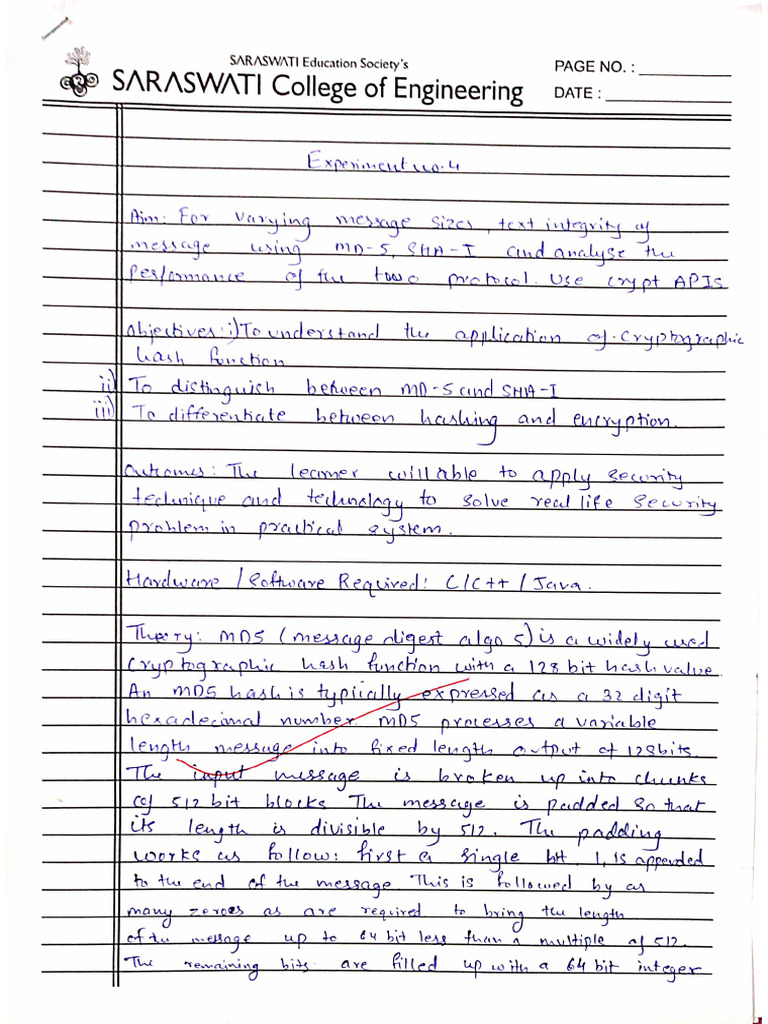 SARASWATI Education Society's
SARASWATI College of Engineering
PAGE NO. : ___________
DATE : ___________
Experiment no. 4
Aim: For varying message sizes, text integrity of
message using MD-5, SHA-I and analyse the
Performance of the two protocol. Use crypt APIs
Objectives: i) To understand the application of Cryptographic
hash function
ii) To distinguish between MD-5 and SHA-I
iii) To differentiate between hashing and encryption.
Outcomes: The learner will able to apply security
technique and technology to solve real life security
problem in practical system.
Hardware / Software Required: C/C++ / Java.
Theory: MD5 (message digest algo 5) is a widely used
Cryptographic hash function with a 128 bit hash value.
An MD5 hash is typically expressed as a 32 digit
hexadecimal number. MD5 processes a variable
length message into fixed length output of 128 bits.
The input message is broken up into chunks
of 512 bit blocks The message is padded so that
its length is divisible by 512. The padding
works as follow: first a single bit, 1, is appended
to the end of the message. This is followed by as
many zeroes as are required to bring the length
of the message up to 64 bit less than a multiple of 512.
The remaining bits are filled up with a 64 bit integer